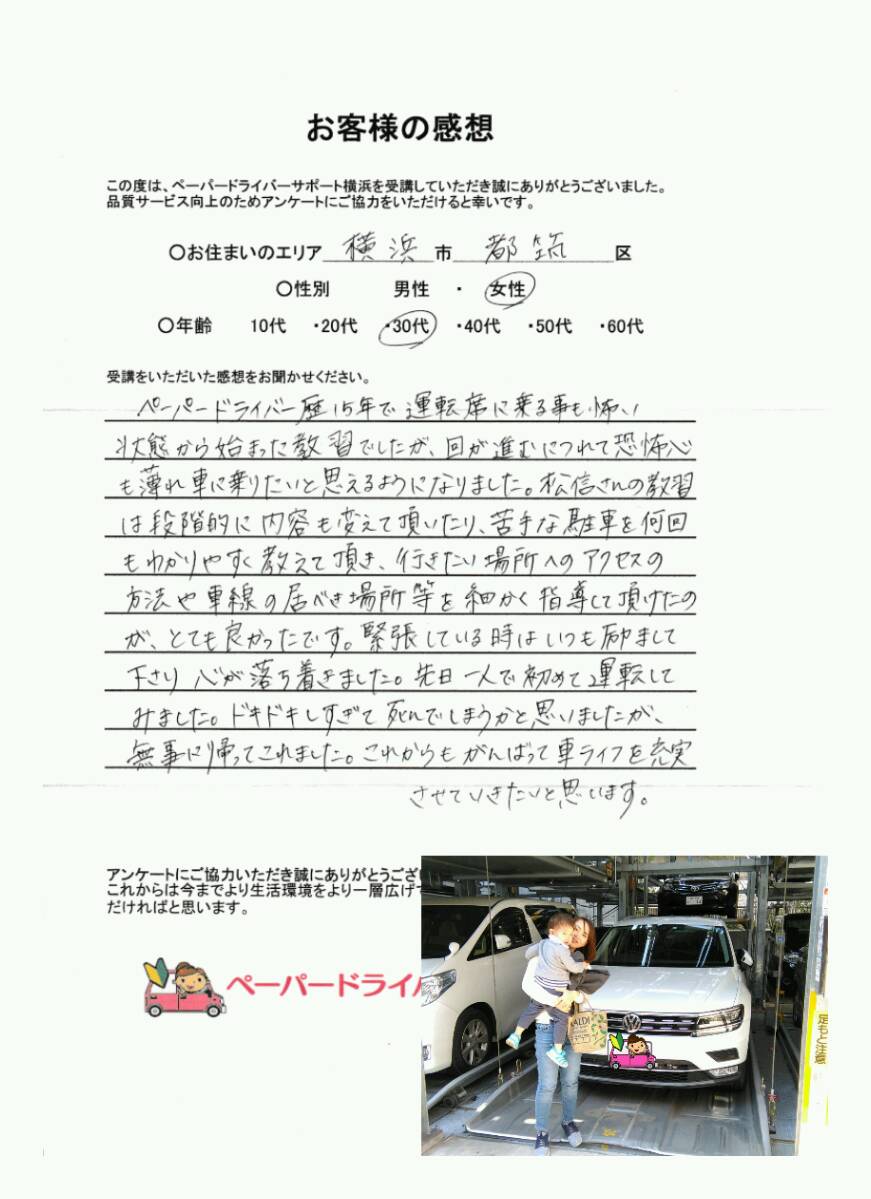 お客様の感想
この度は、ペーパードライバーサポート横浜を受講していただき誠にありがとうございました。
品質サービス向上のためアンケートにご協力をいただけると幸いです。
〇お住まいのエリア 横浜 市 都筑 区
〇性別 男性 ・ 女性
〇年齢 10代 ・20代 ・30代 ・40代 ・50代 ・60代
受講をいただいた感想をお聞かせください。
ペーパードライバー歴15年で運転席に乗る事も怖い
状態から始まった教習でしたが、回が進むにつれて恐怖心
も薄れ車に乗りたいと思えるようになりました。松信さんの教習
は段階的に内容も変えて頂いたり、苦手な駐車を何回
もわかりやすく教えて頂き、行きたい場所へのアクセスの
方法や車線の居べき場所等を細かく指導して頂けたの
が、とても良かったです。緊張している時はいつも励まして
下さり心が落ち着きました。先日一人で初めて運転して
みました。ドキドキしすぎて死んでしまうかと思いましたが、
無事に帰ってこれました。これからもがんばって車ライフを充実
させていきたいと思います。
アンケートにご協力いただき誠にありがとうござい
これからは今までより生活環境をより一層広げて
だければと思います。
ペーパードライバ
ALDI
足もと注意